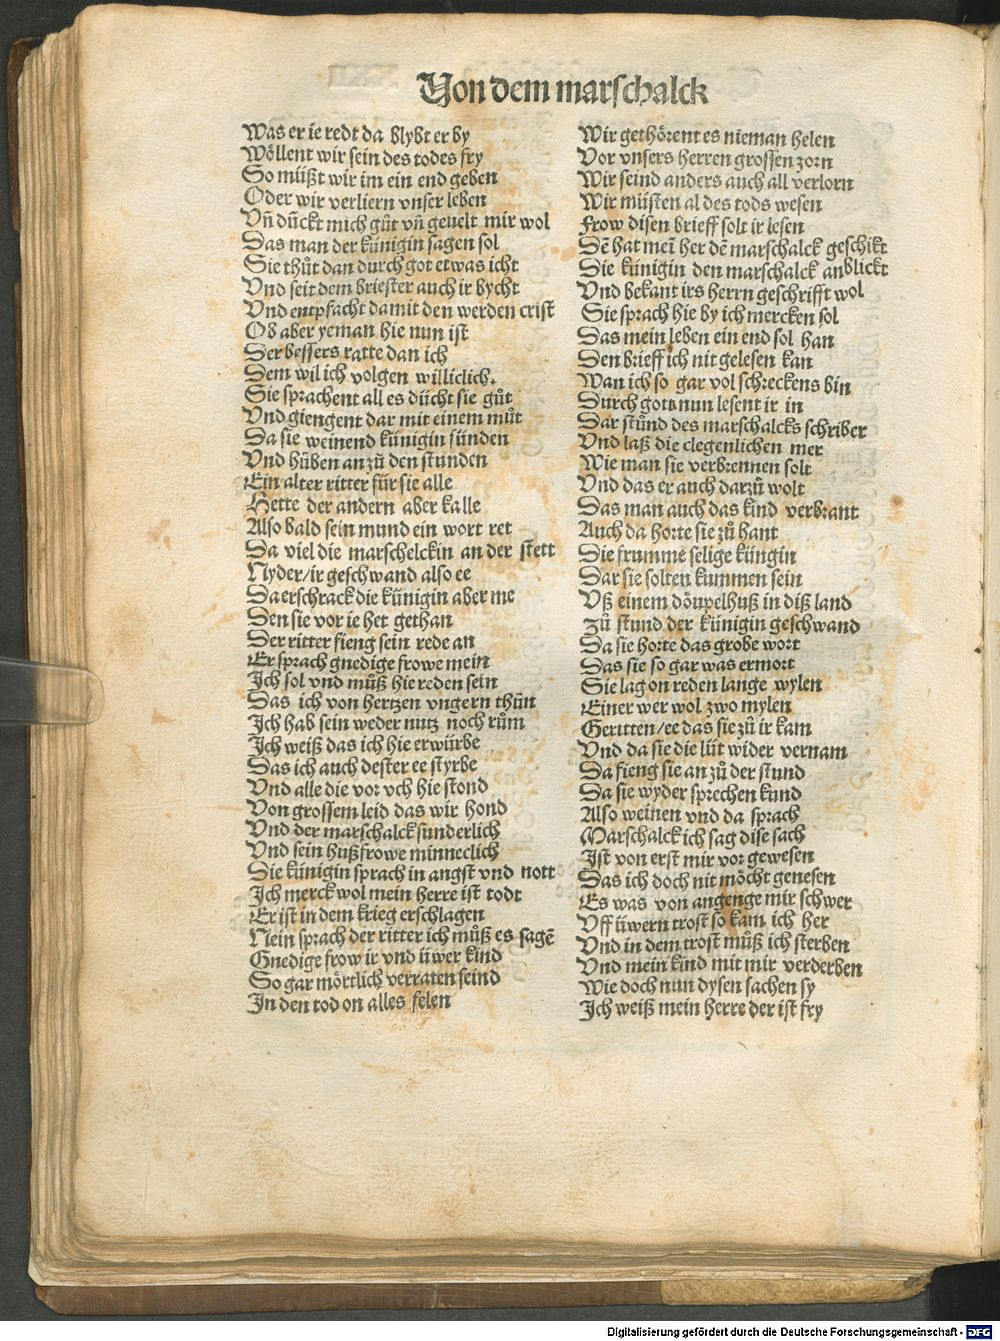 Von dem marschalck
Was er ie redt da blybt er by
Wöllent wir sein des todes fry
So müßt wir im ein end geben
Oder wir verliern vnser leben
Vñ dückt mich gůt vñ geuelt mir wol
Das man der künigin sagen sol
Sie thůt dan durch got etwas icht
Vnd seit dem briester auch ir bycht
Vnd entpfacht damit den werden crist
Ob aber yeman hie nun ist
Der bessers ratte dan ich
Dem wil ich volgen williclich.
Sie sprachent all es dücht sie gůt
Vnd giengent dar mit einem můt
Da sie weinend künigin fünden
Vnd hůben an zů den stunden
Ein alter ritter für sie alle
Hette der andern aber kalle
Also bald sein mund ein wort ret
Da viel die marschelckin an der stett
Nyder/ir geschwand also ee
Da erschrack die künigin aber me
Den sie vor ie het gethan
Der ritter fieng sein rede an
Er sprach gnedige frowe mein
Ich sol vnd můß hie reden sein
Das ich von hertzen vngern thůn
Ich hab sein weder nutz noch rům
Ich weiß das ich hie erwürbe
Das ich auch dester ee styrbe
Vnd alle die vor vch hie stond
Von grossem leid das wir hond
Vnd der marschalck sunderlich
Vnd sein hußfrowe minneclich
Die künigin sprach in angst vnd nott
Ich merck wol mein herre ist todt
Er ist in dem krieg erschlagen
Nein sprach der ritter ich můß es sagē
Gnedige frow ir vnd üwer kind
So gar mörtlich verraten seind
In den tod on alles felen
Wir gethörent es nieman helen
Vor vnsers herren grossen zorn
Wir seind anders auch all verlorn
Wir müsten al des tods wesen
Frow disen brieff solt ir lesen
Dē hat mei her dē marschalck geschikt
Die künigin den marschalck anblickt
Vnd bekant irs herrn geschrifft wol
Sie sprach hie by ich mercken sol
Das mein leben ein end sol han
Den brieff ich nit gelesen kan
Wan ich so gar vol schreckens bin
Durch gots nun lesent ir in
Dar stůnd des marschalcks schriber
Vnd laß die clegenlichen mer
Wie man sie verbrennen solt
Vnd das er auch darzů wolt
Das man auch das kind verbrant
Auch da horte sie zů hant
Die frumme selige küngin
Dar sie solten kummen sein
Vß einem döupelhuß in diß land
Zů stund der künigin geschwand
Da sie horte das grobe wort
Das sie so gar was ermort
Sie lag on reden lange wylen
Einer wer wol zwo mylen
Geritten/ee das sie zů ir kam
Vnd da sie die lüt wider vernam
Da fieng sie an zů der stund
Da sie wyder sprechen kund
Also weinen vnd da sprach
Marschalck ich sag dise sach
Ist von erst mir vor gewesen
Das ich doch nit möcht genesen
Es was von angenge mir schwer
Vff üwern trost so kam ich her
Vnd in dem trost můß ich sterben
Vnd mein kind mit mir verderben
Wie doch nun dysen sachen sy
Ich weiß mein herre der ist fry
Digitalisierung gefördert durch die Deutsche Forschungsgemeinschaft - DFG